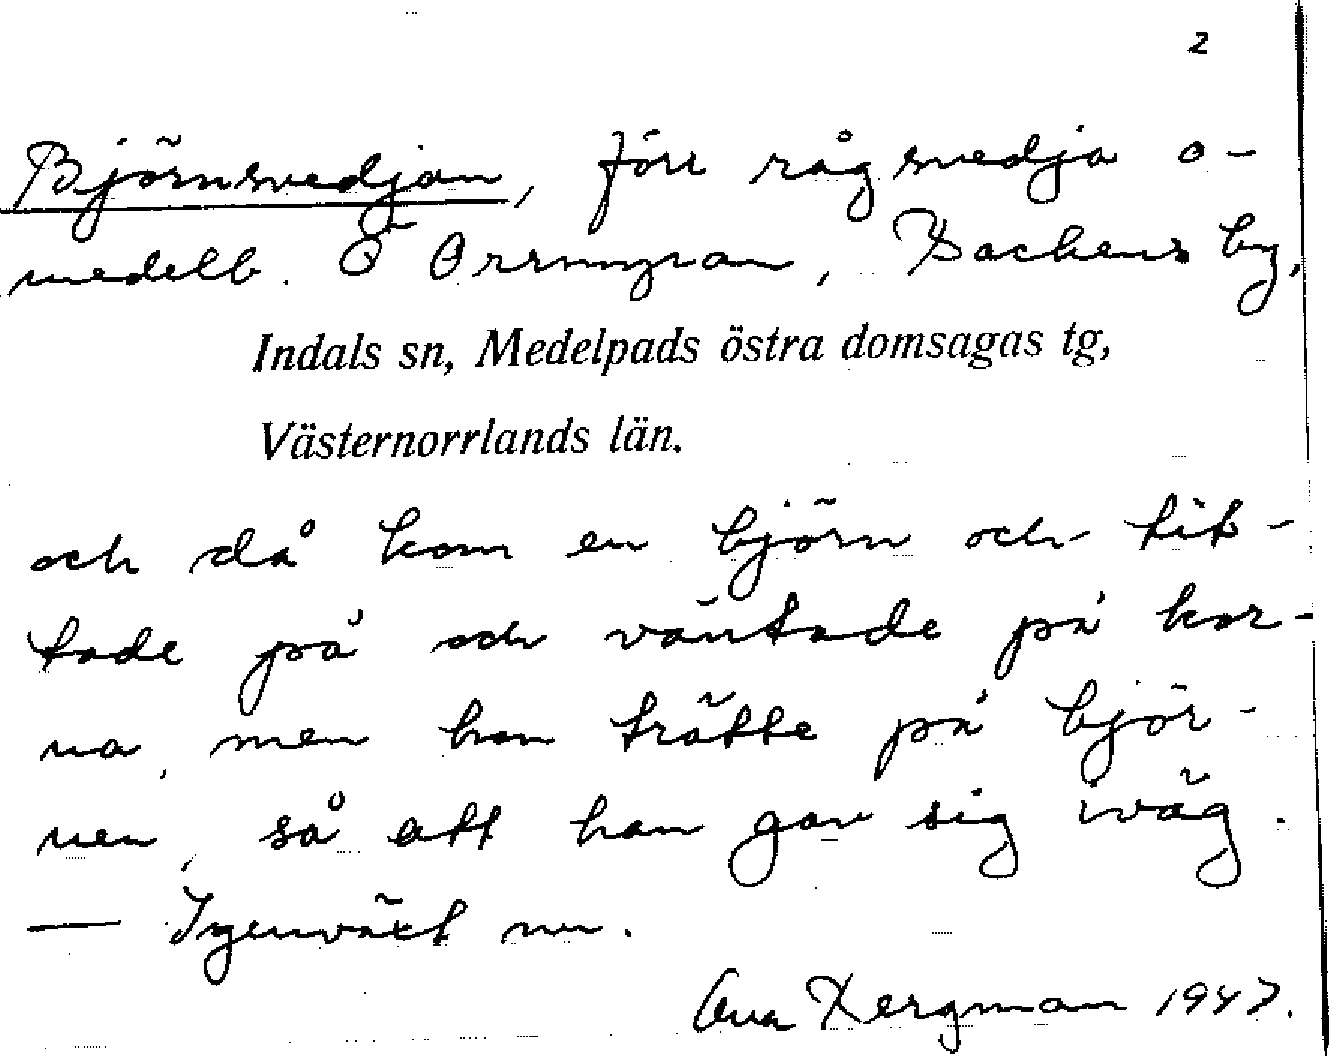 2
Björnsvedjan, förr rågsvedja o-
medelb. Ö Orrmyran, Backens by,
Indals sn, Medelpads östra domsagas tg,
Västernorrlands län.
och då kom en björn och tit-
tade på och väntade på kor-
na, men han trätte på björ-
nen, så att han gav sig iväg.
— Igenväxt nu.
Eva Bergman 1947.